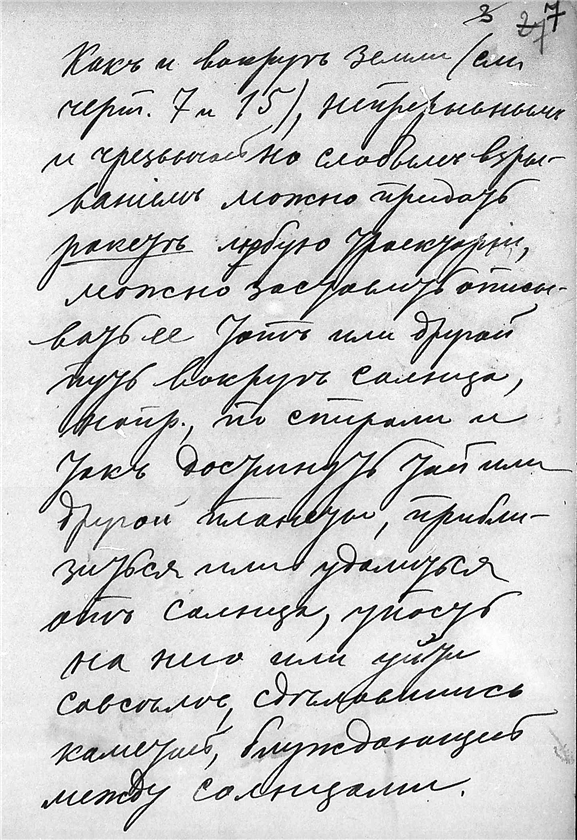 3 27 7
Какъ и вокругъ земли (см
черт. 7 и 15), непрерывнымъ
и чрезвычайно слабымъ взры-
ваніемъ можно придать
ракетѣ любую траекторію,
можно заставить описы-
вать ее тотъ или другой
путь вокругъ солнца,
напр., по спирали и
такъ достигнуть той или
другой планеты, прибли-
зиться или удалиться
отъ солнца, упасть
на него или уйти
совсѣмъ, сдѣлавшись
кометой, блуждающей
между солнцами.